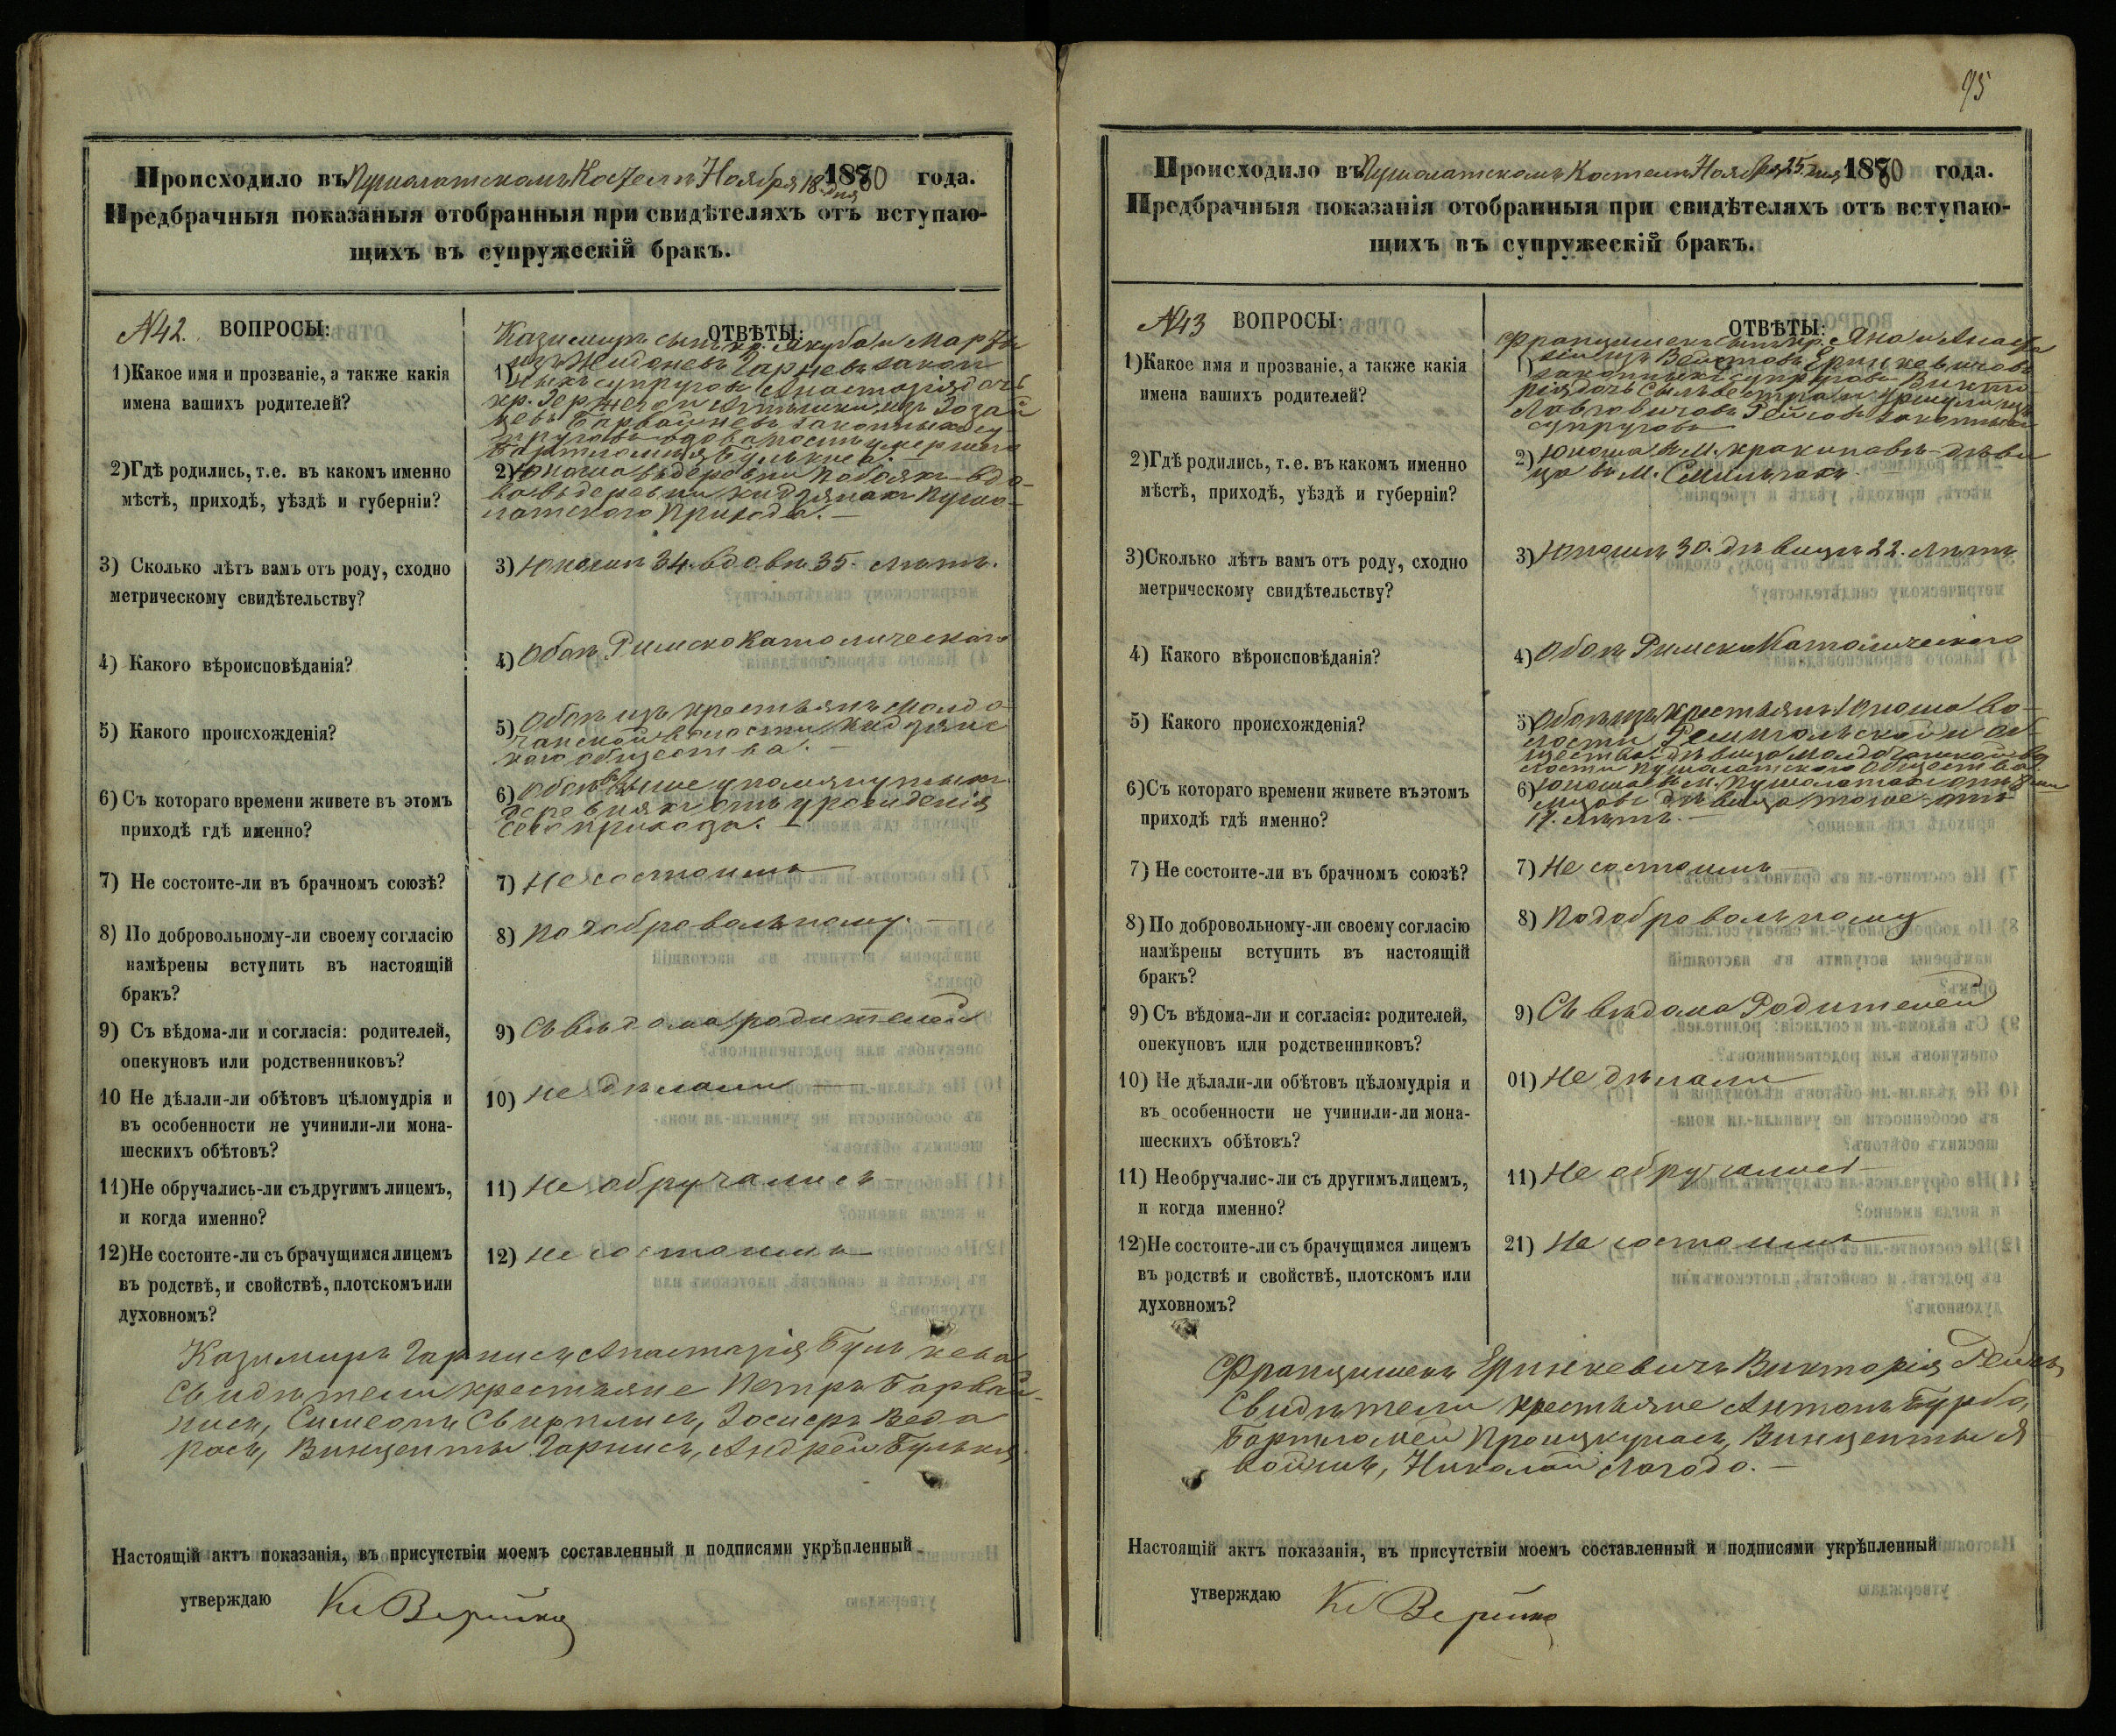 Происходило въ Пушолатскомъ Костелѣ Ноября 18 дня 1880 года.
Предбрачныя показаныя отобранныя при свидѣтеляхъ отъ вступаю-
щихъ въ супружескій бракъ.
№42. ВОПРОСЫ:
1) Какое имя и прозваніе, а также какія
имена вашихъ родителей?
2) Гдѣ родились, т.е. въ какомъ именно
мѣстѣ, приходѣ, уѣздѣ и губерніи?
3) Сколько лѣтъ вамъ отъ роду, сходно
метрическому свидѣтельству?
4) Какого вѣроисповѣданія?
5) Какого происхожденія?
6) Съ котораго времени живете въ этомъ
приходѣ гдѣ именно?
7) Не состоите-ли въ брачномъ союзѣ?
8) По добровольному-ли своему согласію
намѣрены вступить въ настоящій
бракъ?
9) Съ вѣдома-ли и согласія: родителей,
опекуновъ или родственниковъ?
10 Не дѣлали-ли обѣтовъ цѣломудрія и
въ особенности не учинили-ли мона-
шескихъ обѣтовъ?
11) Не обручались-ли съ другимъ лицемъ,
и когда именно?
12) Не состоите-ли съ брачущимся лицемъ
въ родствѣ, и свойствѣ, плотскомъ или
духовномъ?
ОТВѢТЫ:
Казимиръ сынъ кр. Якуба и Марты
1) изъ Гарневъ закон
ныхъ супруговъ Анастазія дочь
кр.
Барвайнев законныхъ су
пруговъ вдова по умершего
2) Юноша въ деревни вдо-
ва въ деревни Пушо-
латского Прихода. —
3) Юношѣ 34. вдовѣ 35. лѣтъ.
4) Обоѣ Римско Католическаго
5) Обоѣ изъ крестьянъ
волости
каго общества. —
6) Обоѣ въ выше упомянутыхъ
деревняхъ отъ урожденія
сего прихода. —
7) Не состоимъ
8) По добровольному. —
9) Съ вѣдома родителей
10) Не дѣлали —
11) Не обручались —
12) Не состоимъ
Казимиръ Гарнись Анастазія
Свидѣтели крестьяне Петръ Барвай-
нись, Симеонъ
Винценты Гарнись, Андрей
Настоящій актъ показанія, въ присутствіи моемъ составленный и подписями укрѣпленный
утверждаю
95
Происходило въ Пушолатскомъ Костелѣ Ноября 25 дня 1880 года.
Предбрачныя показанія отобранныя при свидѣтеляхъ отъ вступаю-
щихъ въ супружескій бракъ.
№43 ВОПРОСЫ:
1) Какое имя и прозваніе, а также какія
имена вашихъ родителей?
2) Гдѣ родились, т.е. въ какомъ именно
мѣстѣ, приходѣ, уѣздѣ и губерніи?
3) Сколько лѣтъ вамъ отъ роду, сходно
метрическому свидѣтельству?
4) Какого вѣроисповѣданія?
5) Какого происхожденія?
6) Съ котораго времени живете въ этомъ
приходѣ гдѣ именно?
7) Не состоите-ли въ брачномъ союзѣ?
8) По добровольному-ли своему согласію
намѣрены вступить въ настоящій
бракъ?
9) Съ вѣдома-ли и согласія: родителей,
опекуновъ или родственниковъ?
10) Не дѣлали-ли обѣтовъ цѣломудрія и
въ особенности не учинили-ли мона-
шескихъ обѣтовъ?
11) Необручалис-ли съ другимъ лицемъ,
и когда именно?
12) Не состоите-ли съ брачущимся лицемъ
въ родствѣ и свойствѣ, плотскомъ или
духовномъ?
ОТВѢТЫ:
Францишекъ сынъ кр. Яна и
1) изъ
законныхъ супруговъ Викто
рія дочь Сыльвестра и Уршули изъ
законныхъ
супруговъ
2) Юноша въ М. дѣви
ца въ М.
3) Юношѣ 30. дѣвицѣ 22. лѣтъ
4) Обоѣ Римско Католическаго
5) Обоѣ изъ крестьянъ Юноша во-
лости
дѣвица
лости Пушолатского общества
6) Юноша въ М. Пушолатахъ отъ
дѣвица тоже отъ
17. лѣтъ. —
7) Не состоимъ —
8) По добровольному
9) Съ вѣдома Родителей
01) Не дѣлали
11) Не обручались —
21) Не состоимъ
Францишекъ Еринкевичъ Викторія
Свидѣтели крестьяне Антонъ Бурба,
Бартломей Винценты
Николай
Настоящій актъ показанія, въ присутствіи моемъ составленный и подписями укрѣпленный
утверждаю